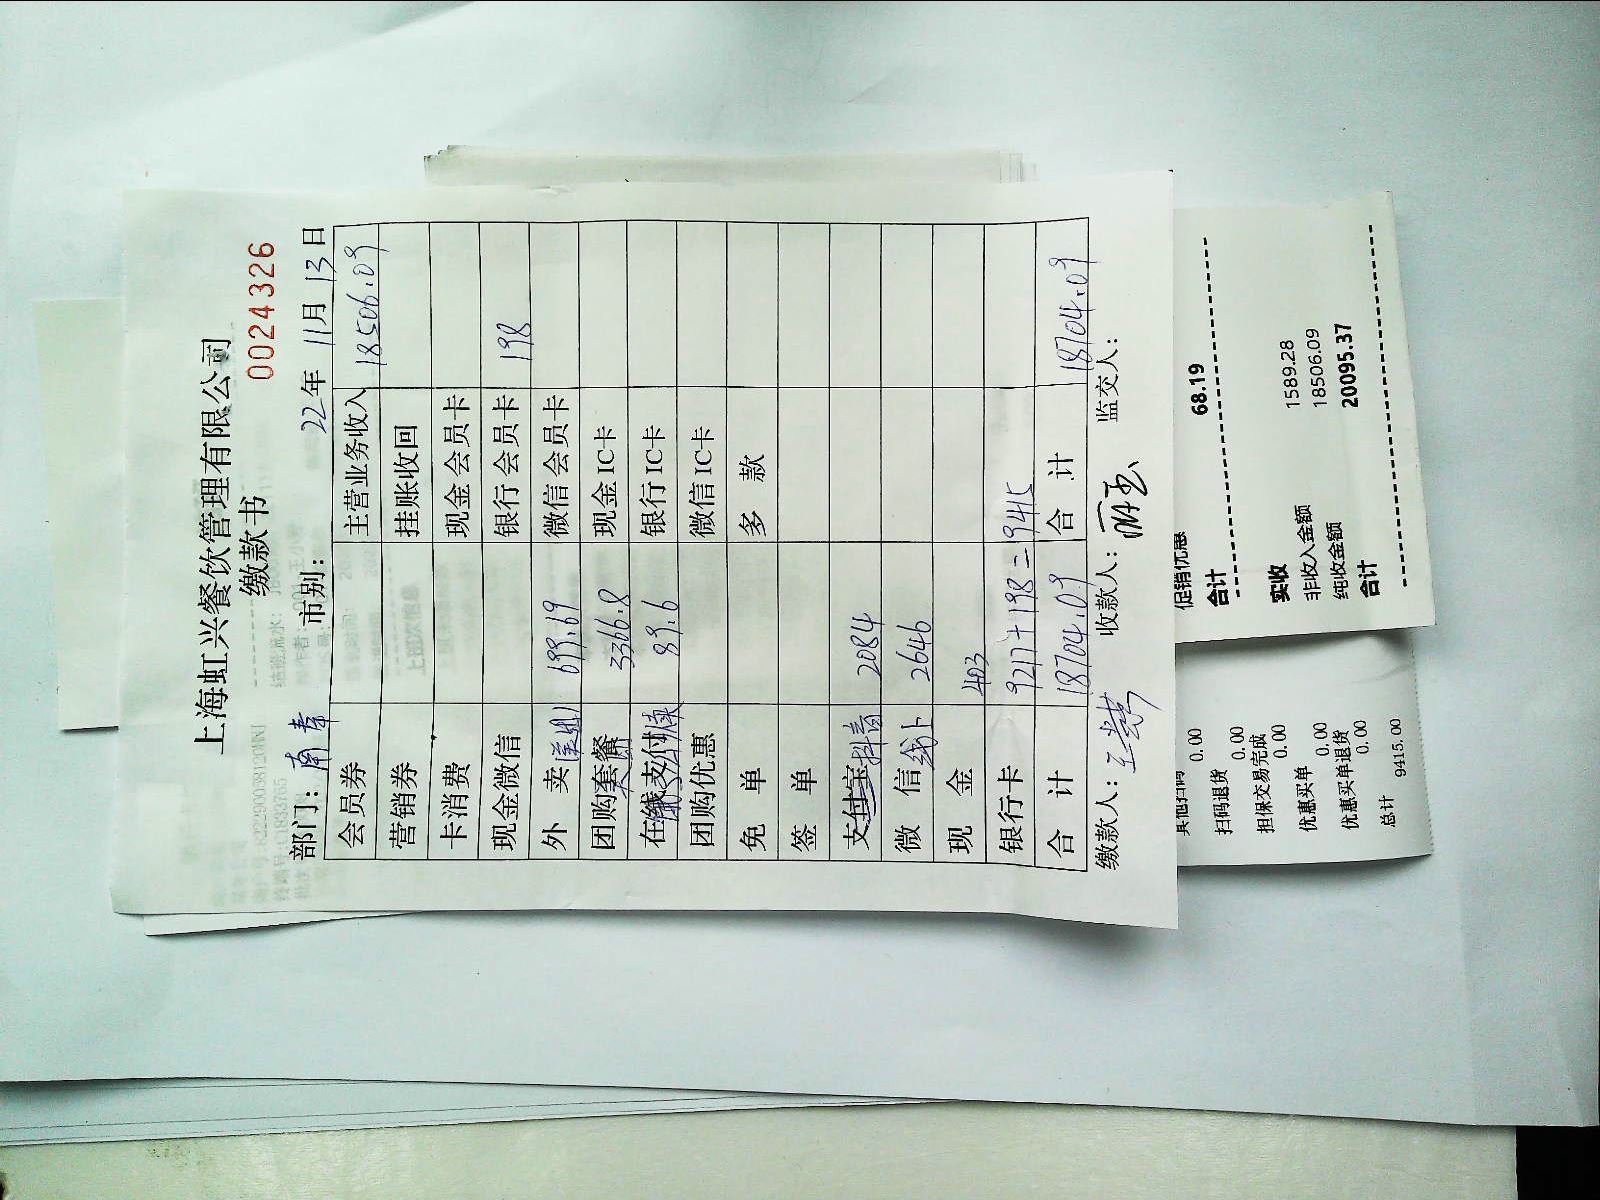 上海虹兴餐饮管理有限公司
缴款书 0024326
部门：南 市别： 22年 11月 13日
会员券 主营业务收入 18506.09
营销券 挂账收回
卡消费 现金会员卡
现金微信 银行会员卡 198
外 卖 699.69 微信会员卡
团购套餐 3366.8 现金IC卡
在线支付 89.6 银行IC卡
团购优惠 微信IC卡
免 单 多 款
签 单
支付宝 抖音 2084
微 信 线上 2646
现 金 403
银行卡 9217+198=9415
合 计 18704.09 合 计 18704.09
缴款人： 收款人： 监交人：
促销优惠
合计 68.19
实收
非收入金额 1589.28
纯收金额 18506.09
合计 20095.37
其他扫码
0.00
扫码退货
0.00
担保交易完成
0.00
优惠买单
0.00
优惠买单退货
0.00
总计
9415.00